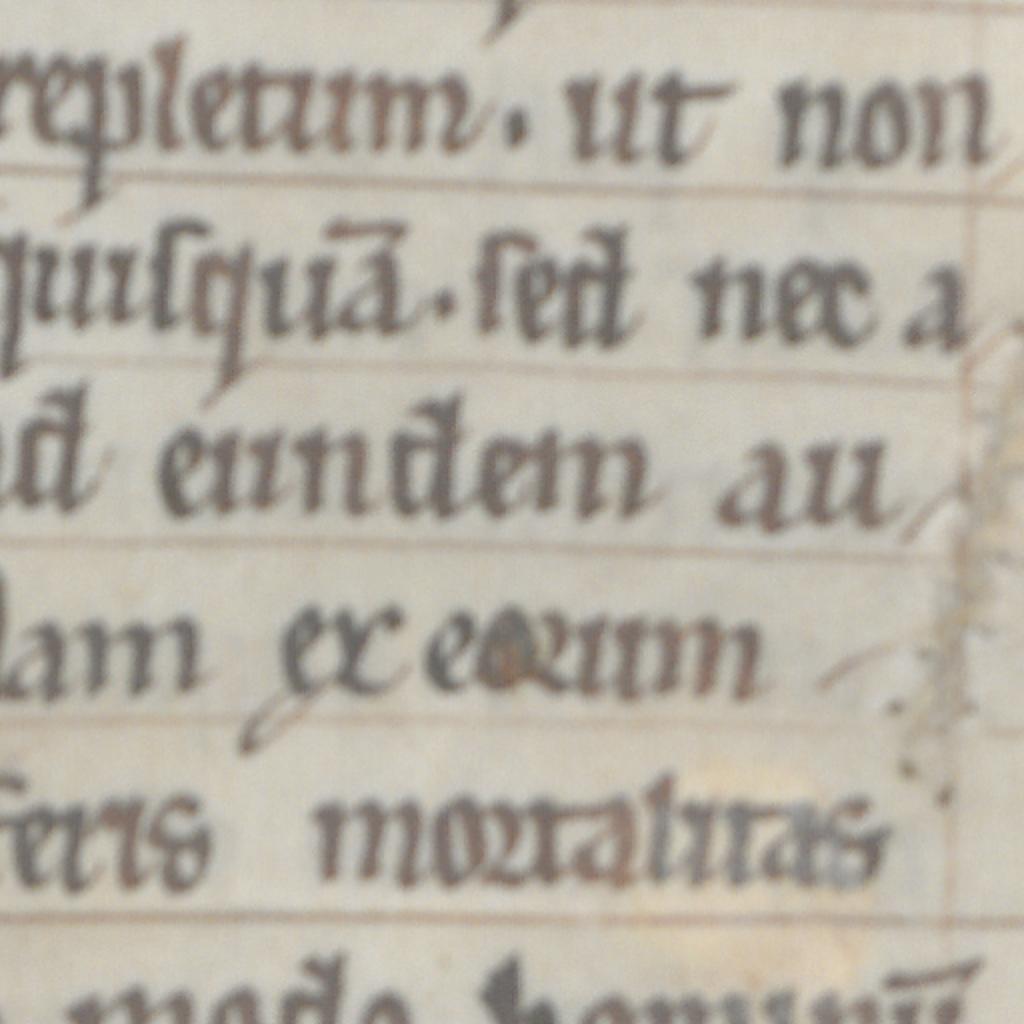 repletum. ut non
quisquā. sed nec a
ad eundem au
dam ex eorum
feris mortalitas
modo hominū